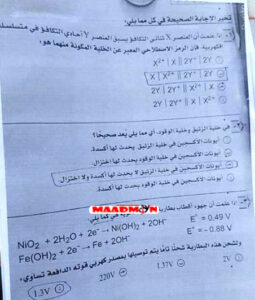 تخير الإجابة الصحيحة في كل مما يلي:
إذا علمت أن العنصر X ثنائي التكافؤ يسبق العنصر Y أحادي التكافؤ في متسلسلة
فإن الرمز الاصطلاحي المعبر عن الخلية المكونة منهما هو:
X²⁺ | X || 2Y | 2Y⁻
X | X²⁺ || 2Y⁺ | 2Y
2Y | 2Y⁺ || X²⁺ | X
2Y | 2Y⁺ || X | X²⁺
في خلية الزئبق وخلية الوقود، أي مما يلي يعد صحيحًا؟
أيونات الأكسجين في خلية الوقود يحدث لها أكسدة.
أيونات الأكسجين في خلية الزئبق يحدث لها أكسدة.
أيونات الأكسجين في خلية الزئبق لا يحدث لها أكسدة ولا اختزال.
أيونات الأكسجين في خلية الوقود لا يحدث لها أكسدة.
إذا علمت أن جهود أقطاب بطارية كما يلي
MAADMON
NiO₂ + 2H₂O + 2e⁻ → Ni(OH)₂ + 2OH⁻ E° = 0.49 V
Fe(OH)₂ + 2e⁻ → Fe + 2OH⁻ E° = - 0.88 V
ولشحن هذه البطارية شحنًا تامًا يتم توصيلها بمصدر كهربي قوته الدافعة تساوي
2V
1.37V
220V
1.3V